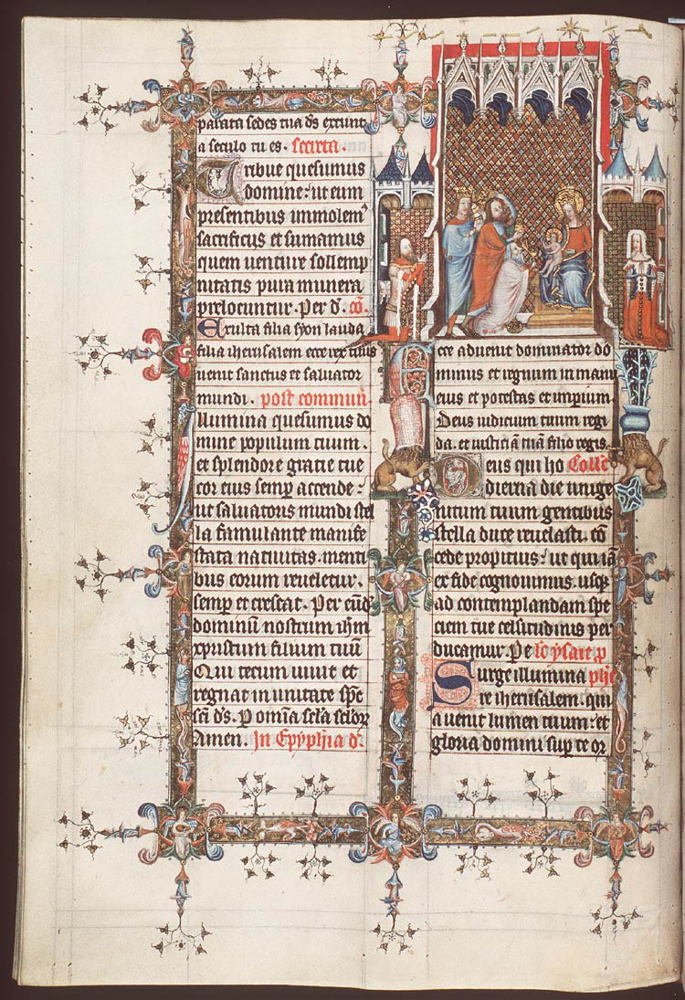 parata sedes tua ds extunc
a seculo tu es. secreta.
Tribue quesumus
domine: ut eum
presentibus immolem
sacrificiis et sumamus
quem venture sollemp
nitatis pura munera
preloquuntur. Per d. cō.
Exulta filia syon lauda
filia iherusalem ecce rex tuus
uenit sanctus et saluator
mundi. post commun
Illumina quesumus do
mine populum tuum.
et splendore gratie tue
cor eius semp accende:
ut saluatoris mundi stel
la famulante manife
stata natiuitas. menti
bus eorum reueletur.
semp et crescat. Per eūd
dominū nostrum ihm
xpristum filium tuū
Qui tecum uiuit et
regnat in unitate spc
sci ds. P omīa scla sclor
Amen. In Epyphia d.
Ecce aduenit dominator do
minus et regnum in manu
eius et potestas et imperium.
Deus iudicium tuum regi
da. et iusticiā tuā filio regis.
Deus qui ho Colle
dierna die unige
nitum tuum gentibus
stella duce reuelasti. cō
cede propicius: ut qui iā
ex fide cognouimus. usq
ad contemplandam spe
ciem tue celsitudinis per
ducamur. Pe lc ysaie p
Surge illumina phe
re iherusalem. quia
uenit lumen tuum: et
gloria domini sup te or